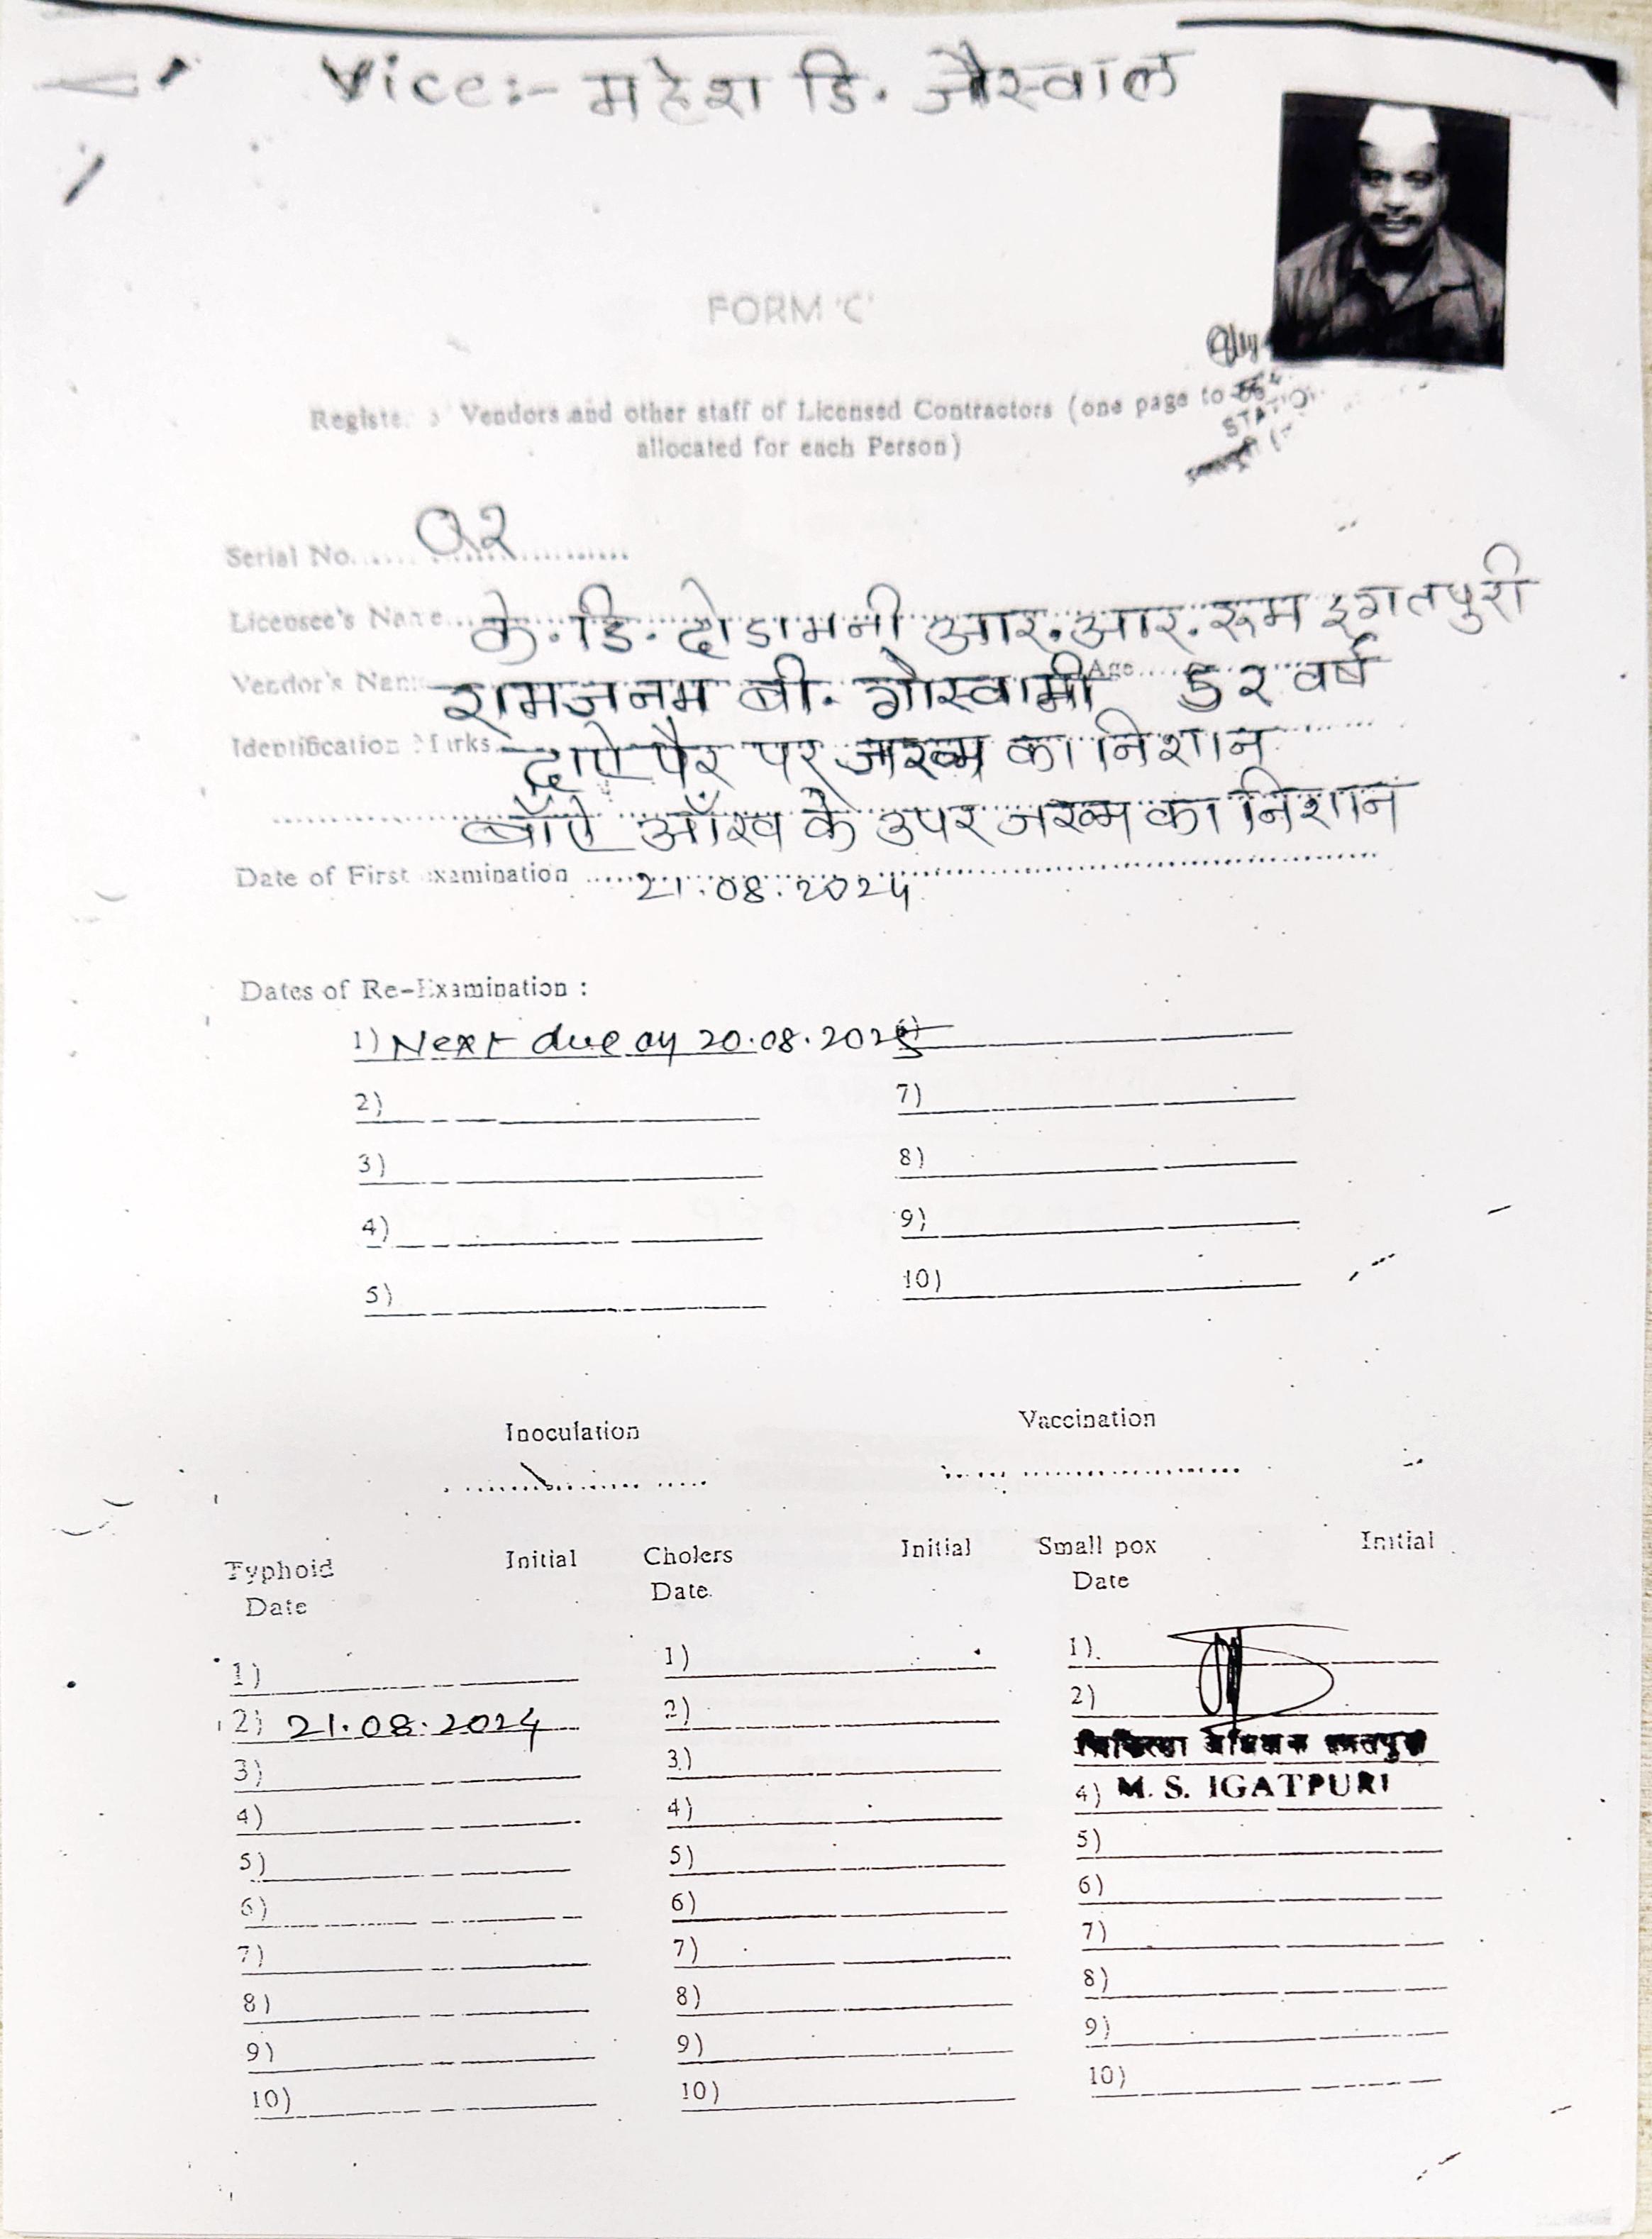 Vice:- महेश डि. जैस्वाल
FORM 'C'
Vendors and other staff of Licensed Contractors (one page to
allocated for each Person)
Serial No. 02
Licensee's Name के. डि. दोडामनी आर. आर. रूम इगतपुरी
Vendor's Name रामजनम बी. गोस्वामी Age 52 वर्ष
Identification Marks दाऐ पैर पर जख्म का निशान
बाँऐ आँख के उपर जख्म का निशान
Date of First examination 21.08.2024
Dates of Re-Examination :
1) Next due on 20.08.2025
2) 7)
3) 8)
4) 9)
5) 10)
Inoculation Vaccination
Typhoid Initial Cholers Initial Small pox Initial
Date Date. Date
1) 1) 1)
2) 21.08.2024 2) 2)
3) 3)
4) 4) 4) M. S. IGATPURI
5) 5) 5)
6) 6) 6)
7) 7) 7)
8) 8) 8)
9) 9) 9)
10) 10) 10)